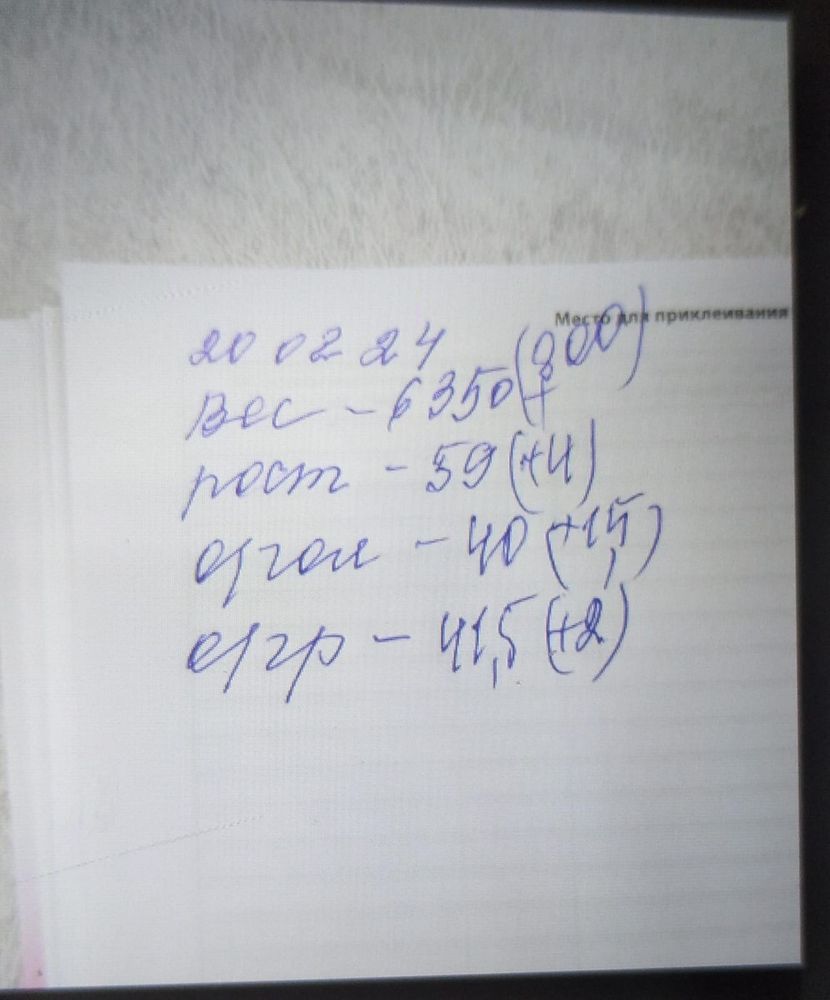 Место для приклеивания
20 02 24
Вес - 6350 (+900)
рост - 59 (+4)
о/гол - 40 (+1,5)
о/гр - 41,5 (+2)